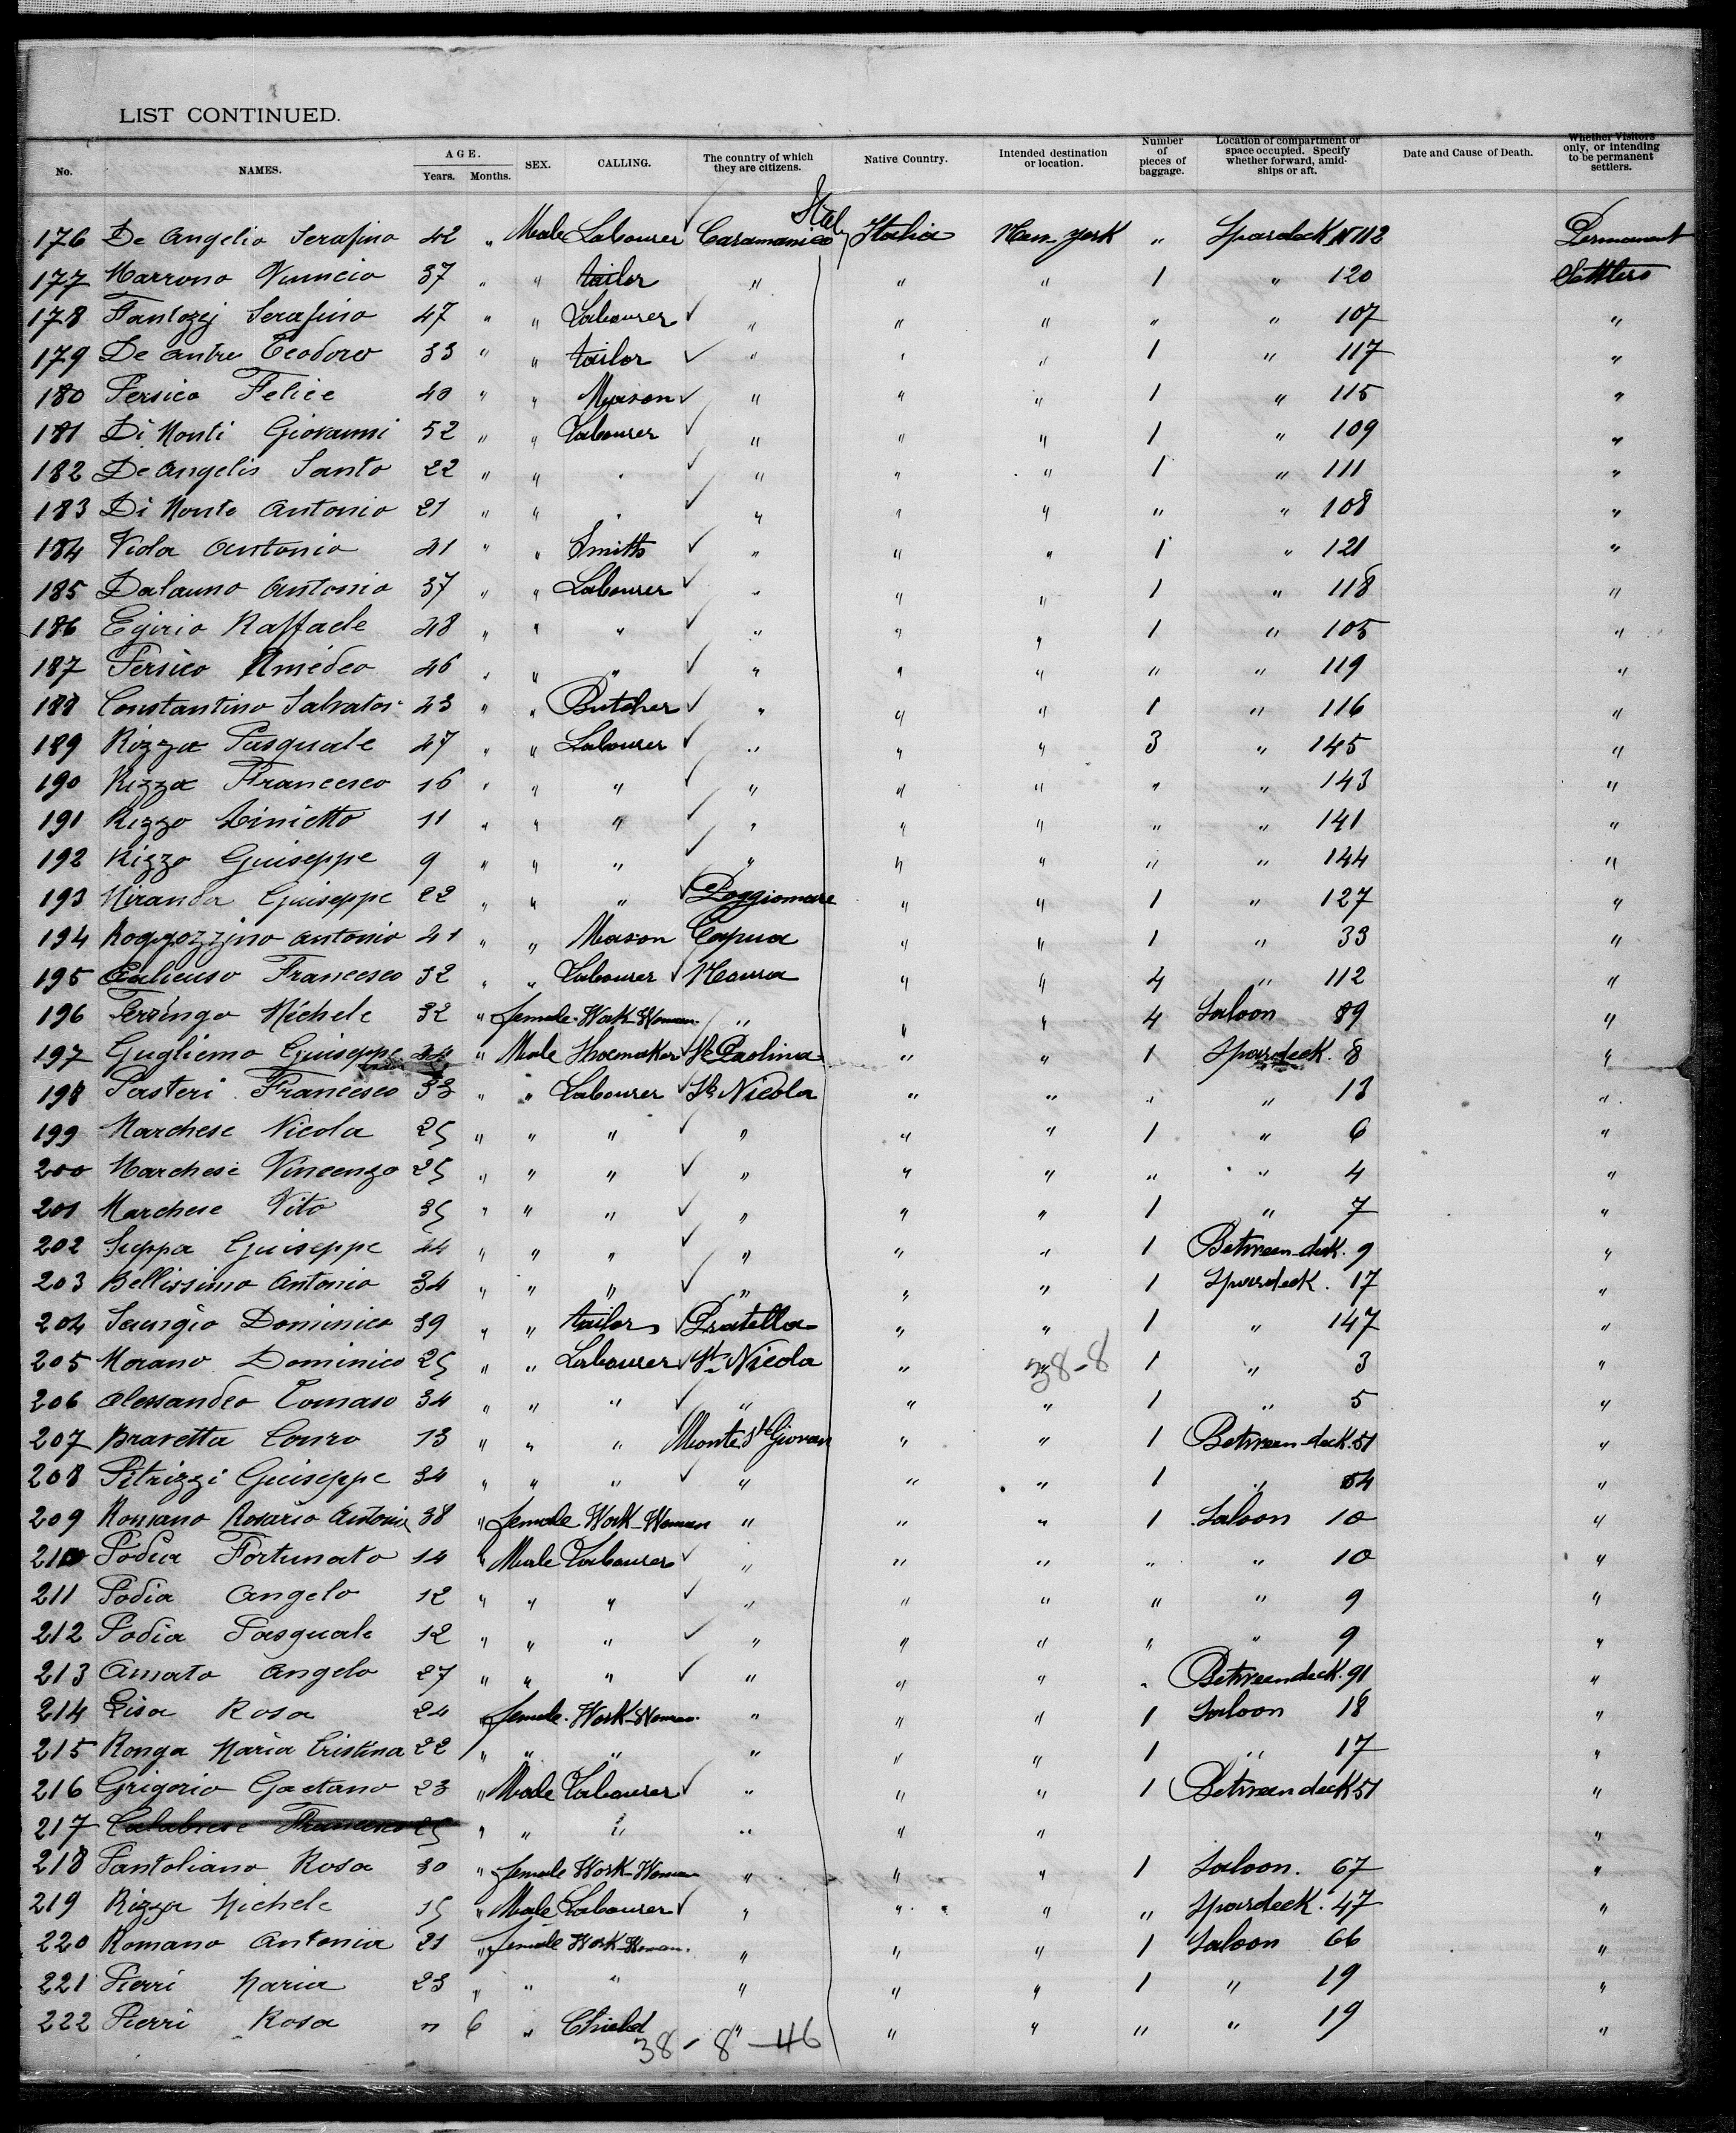 LIST CONTINUED.
No. NAMES. AGE. Years. Months. SEX. CALLING. The country of which they are citizens. Native Country. Intended destination or location. Number of pieces of baggage. Location of compartment or space occupied. Specify whether forward, amidships or aft. Date and Cause of Death. Whether Visitors only, or intending to be permanent settlers.
Italy
176 De Angelio Serafino 42 " Male Labourer Caramanico Italia New York " Spardeck N 112 Permanent
177 Marrono Nunncio 37 " " tailor " " " 1 " 120 Settlers
178 Fantozzi Serafino 47 " " Labourer " " " " " 107 "
179 De Antre Teodoro 33 " " tailor " " " 1 " 117 "
180 Persico Felice 40 " " Mason " " " 1 " 115 "
181 Di Monti Giovanni 52 " " Labourer " " " 1 " 109 "
182 De Angelis Santo 22 " " " " " " 1 " 111 "
183 Di Monte Antonio 21 " " " " " " " " 108 "
184 Viola Antonio 21 " " Smith " " " 1 " 121 "
185 Dalauno Antonio 37 " " Labourer " " " 1 " 118 "
186 Egirio Raffaele 28 " " " " " " 1 " 105 "
187 Persico Amédeo 26 " " " " " " " " 119 "
188 Constantino Salvator 23 " " Butcher " " " 1 " 116 "
189 Rizza Pasquale 47 " " Labourer " " " 3 " 145 "
190 Rizza Francesco 16 " " " " " " " " 143 "
191 Rizzo Linietto 11 " " " " " " " " 141 "
192 Rizzo Guiseppe 9 " " " " " " " " 144 "
193 Miranda Guiseppe 22 " " " Poggiomare " " 1 " 127 "
194 Roggozzino Antonio 41 " " Mason Capua " " 1 " 33 "
195 Francesco 32 " " Labourer " " 4 " 112 "
196 Terringo Michele 32 " female Work-Woman " " " 4 Saloon 89 "
197 Gugliemo Guiseppe " Male Shoemaker St Paolina " " 1 Spardeck. 8 "
198 Pasteri Francesco 33 " " Labourer St Nicola " " " " 13 "
199 Marchese Nicola 25 " " " " " " 1 " 6 "
200 Marchese Vincenzo 25 " " " " " " " " 4 "
201 Marchese Vito 35 " " " " " " 1 " 7 "
202 Suppa Guiseppe 24 " " " " " " 1 Between-deck. 9 "
203 Bellissimo Antonio 34 " " " " " " 1 Spardeck. 17 "
204 Saungio Dominico 39 " " tailor Pratella " " 1 " 147 "
205 Morano Dominico 25 " " Labourer St Nicola " " 38-8 1 " 3 "
206 Alessandeo Tomaso 34 " " " " " " 1 " 5 "
207 Bravetta Conro 13 " " " Monte St Giovan " " 1 Between-deck. 51 "
208 Pitrizzi Guiseppe 34 " " " " " " 1 " 54 "
209 Romano Rosario Antonia 38 " female Work-Woman " " " 1 Saloon 10 "
210 Podia Fortunato 14 " Male Labourer " " " " " 10 "
211 Podia Angelo 12 " " " " " " " " 9 "
212 Podia Pasquale 12 " " " " " " " " 9 "
213 Amato Angelo 27 " " " " " " " Betweendeck. 91 "
214 Lisa Rosa 24 " female. Work-Woman. " " " 1 Saloon 18 "
215 Ronga Maria Cristina 22 " " " " " " 1 " 17 "
216 Grigorio Gaetano 23 " Male Labourer " " " 1 Between deck 51 "
217 Calabrese Francesco 25 " " " " " " "
218 Santoliano Rosa 30 " female Work-Woman " " " 1 Saloon. 67 "
219 Rizza Michele 15 " Male Labourer " " " " Spardeck. 47 "
220 Romano Antonia 21 " female Work-Woman. " " " 1 Saloon 66 "
221 Pierri Maria 23 " " " " " " 1 " 19 "
222 Pierri Rosa " 6 " Chield " " " " " 19 "
38 - 8 - 46